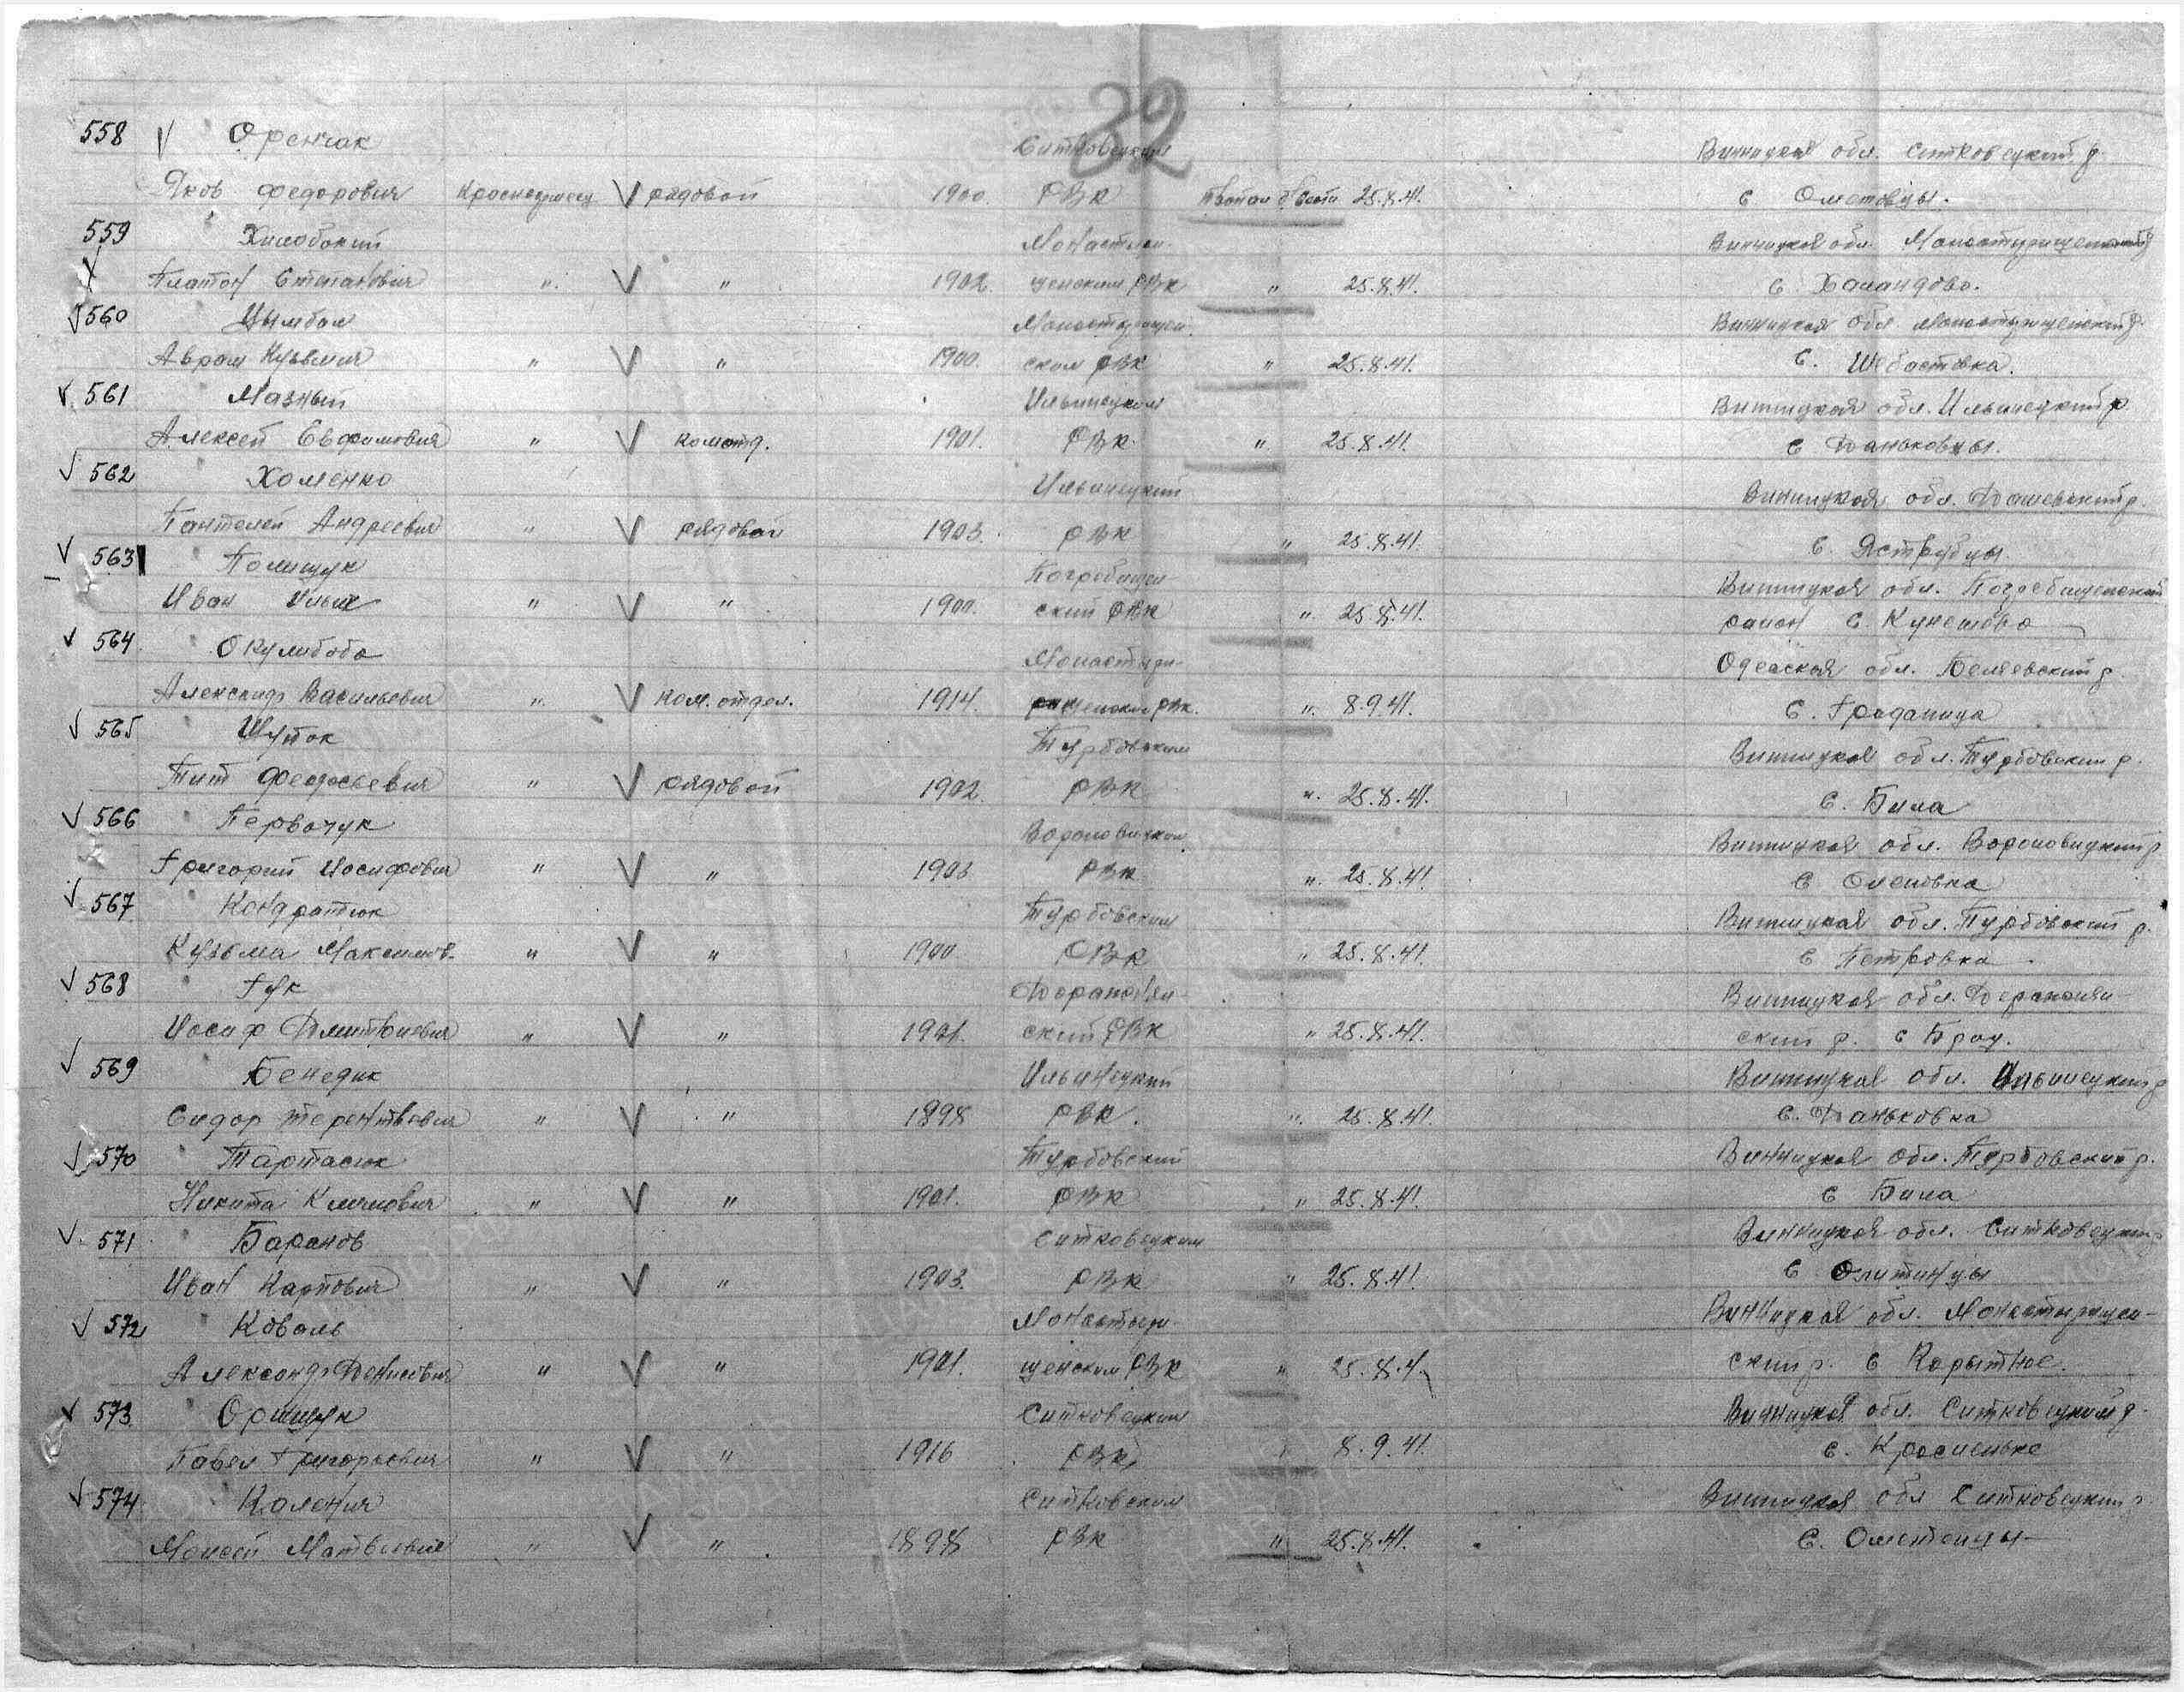 32
558 Оренчак Ситковецким Винницкая обл. Ситковецкий р.
Яков Федорович красноармеец V рядовой 1900. РВК 25.8.41. с Ометовцы.
559 Монастыри- Винницкая обл.
Платон Степанович " V " 1902. щенским РВК " 25.8.41. с.
560 Цымбал Монастырищен- Винницкая обл Монастырищенский р.
Аврам Кузьмич " V " 1900. ским РВК " 25.8.41. с.
V 561 Мазный Ильинецким Винницкая обл. Ильинецкий р.
Алексей Евфимович " V ком отд. 1901. РВК " 25.8.41. с Даньковцы.
V 562 Хоменко Ильинецкий Винницкая обл. Дашевский р.
Пантелей Андреевич " V рядовой 1903. РВК " 25.8.41. с. Яструбцы.
V 563 Полищук Погребищен- Винницкая обл. Погребищенский
Иван Ильич " V " 1900. ский РВК " 25.8.41. район с.
V 564 Окулибаба Монастыри- Одесская обл. Беляевский р.
Александр Васильевич " V ком. отдел. 1914. щенским РВК. " 8.9.41. с. Граданица
V 565 Шупок Турбовским Винницкая обл. Турбовский р.
Тит Федосьевич " V рядовой 1902. РВК " 25.8.41. с. Била
V 566 Первачук Вороновицким Винницкая обл. Вороновицкий р
Григорий Иосифович " V " 1903 РВК " 25.8.41. с Оленовка
V 567 Кондратюк Турбовским Винницкая обл. Турбовский р.
Кузьма Максимов. " V " 1900 РВК " 25.8.41. с Петровка
V 568 Гук Винницкая обл.
Иосиф Дмитриевич " V " 1901. ский РВК " 25.8.41. ский р. с
V 569 Бенедик Ильинецкий Винницкая обл. Ильинецкий р
Сидор Терентьевич " V " 1898 РВК. " 25.8.41. с. Даньковка
V 570 Тартасюк Турбовский Винницкая обл. Турбовский р.
Никита Климович " V " 1901. РВК " 25.8.41. с Била
V 571 Баранов Ситковецким Винницкая обл. Ситковецкий р
Иван Карпович " V " 1903. РВК " 25.8.41. с
V 572 Коваль Монастыри- Винницкая обл. Монастырищен-
Александр Денисович " V " 1901. щенским РВК " 25.8.4 ский р. с Корытное.
V 573 Орищук Ситковецким Винницкая обл. Ситковецкий р.
Павел Григорьевич " V " 1916 РВК " 8.9.41. с. Красненьке
V 574 Каленич Ситковским Винницкая обл Ситковецкий р.
Моисей Матвеевич " V " 1898 РВК " 25.8.41. с. Ометенцы